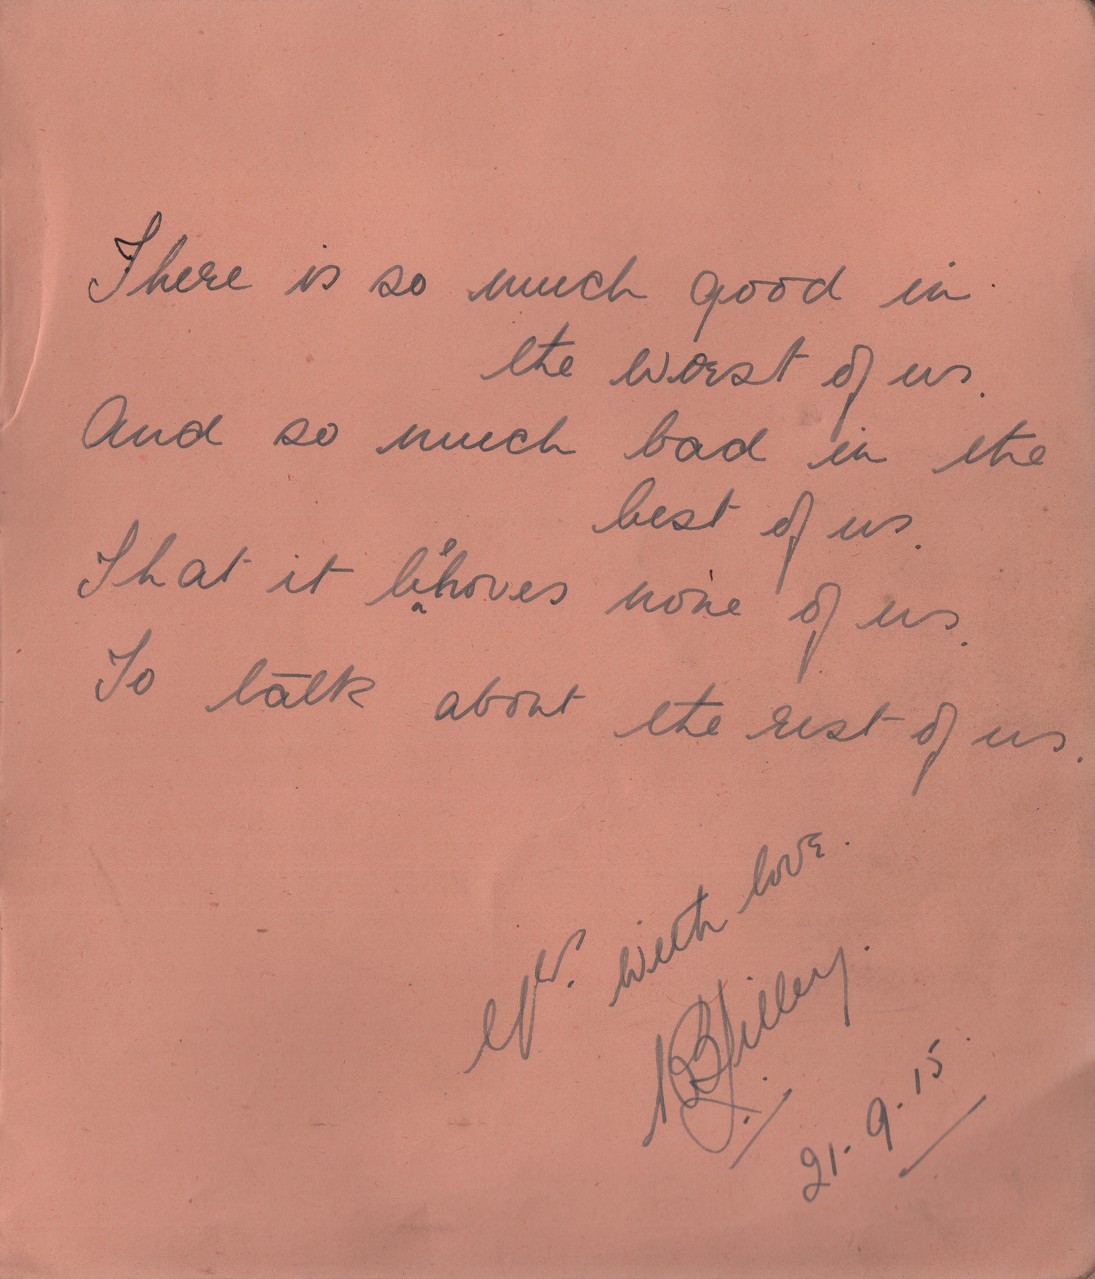 There is so much good in
the worst of us.
And so much bad in the
best of us.
That it behoves none of us.
To talk about the rest of us.
with love.
21-9-15.